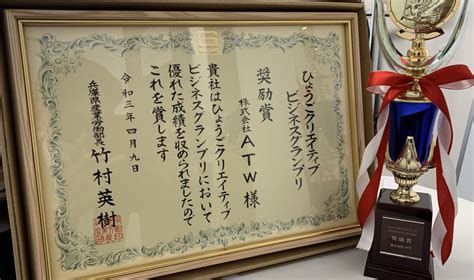 ひょうごクリエイティブ
ビジネスグランプリ
奨励賞
株式会社ATW様
貴社はひょうごクリエイティブ
ビジネスグランプリにおいて
優れた成績を収められましたので
これを賞します
令和三年四月九日
兵庫県産業労働部長
竹村英樹
奨励賞